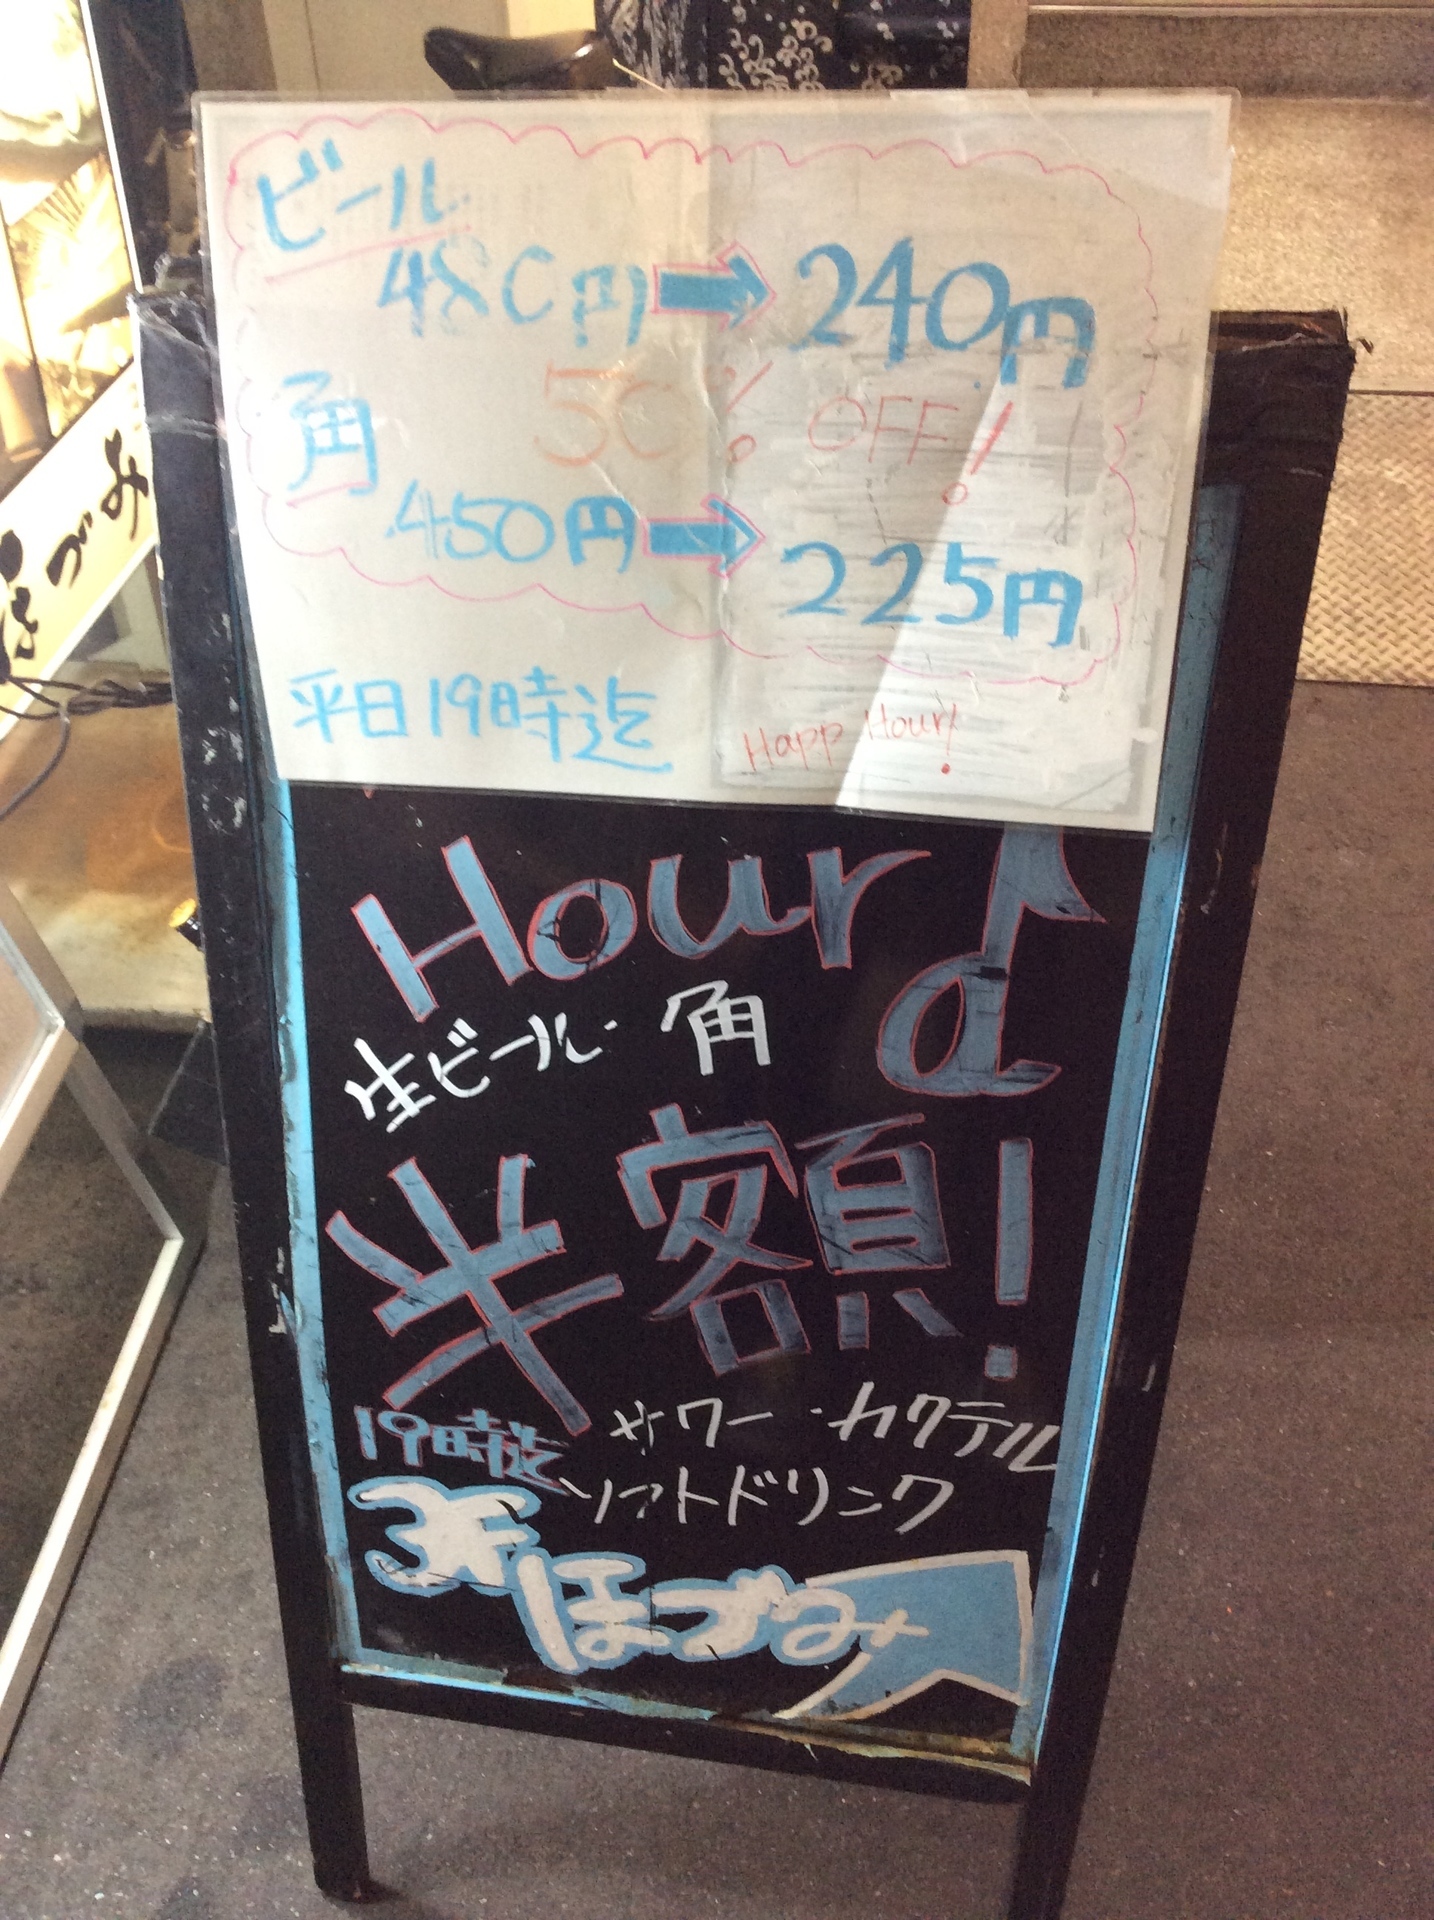 ビール
480円 ➡ 240円
50% OFF!
角
450円 ➡ 225円
平日19時迄
Happ Hour!
Hour♪
生ビール・角
半額!
19時迄
サワー・カクテル
ソフトドリンク
3F ほづみ
づみ